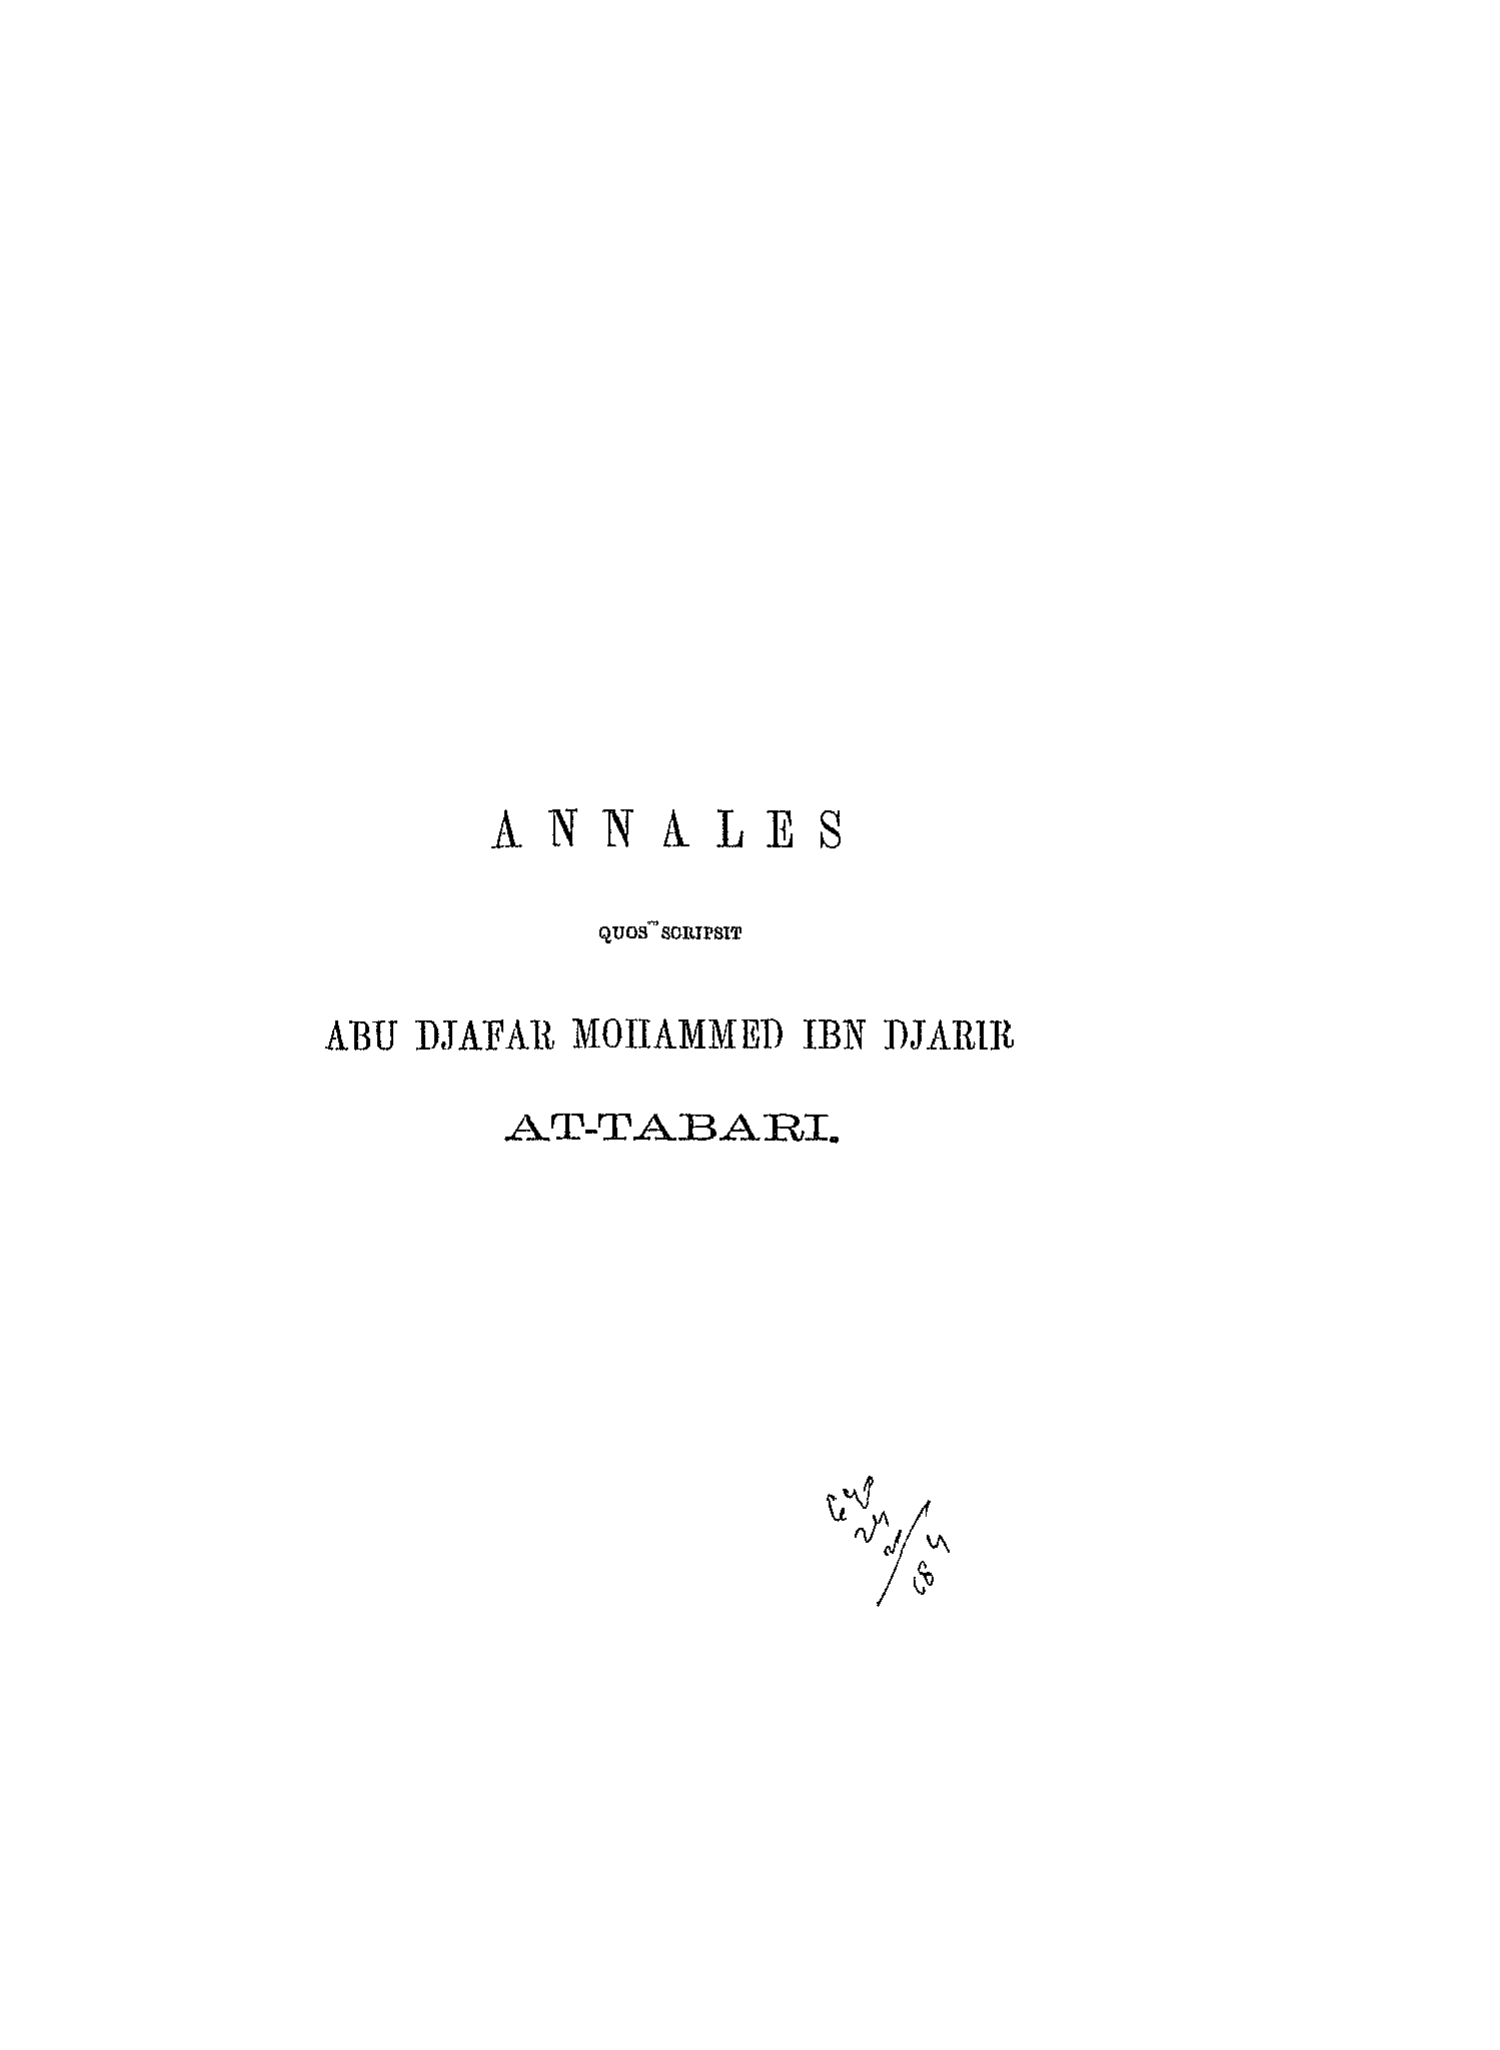 ANNALES
QUOS SCRIPSIT
ABU DJAFAR MOHAMMED IBN DJARIR
AT-TABARI.